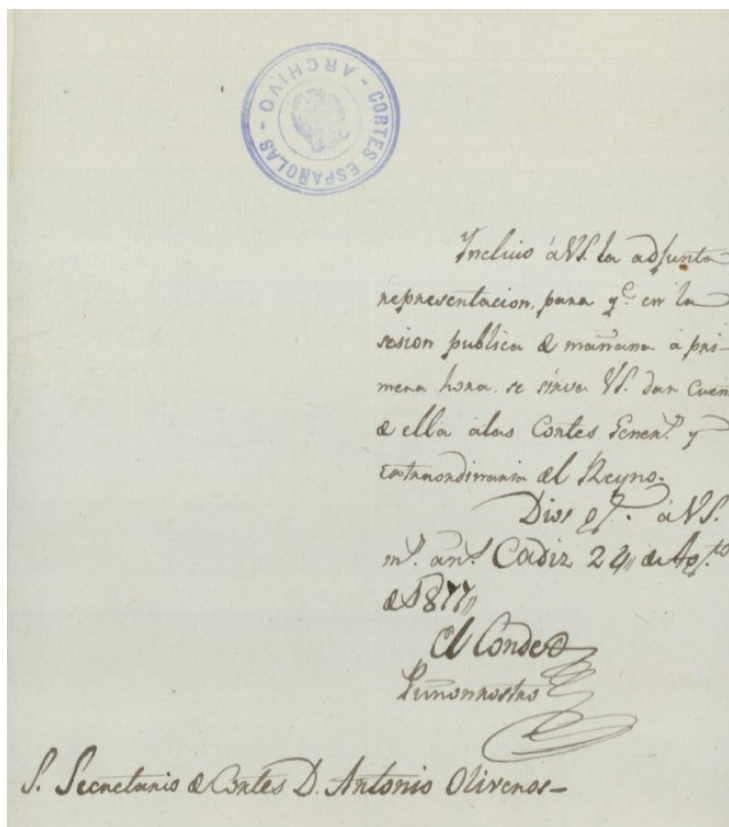 CORTES ESPAÑOLAS - ARCHIVO -
Incluio á VS. la adjunta
representacion, para q.e en la
sesion publica de mañana a pri-
mera hora, se sirva VS. dar cuen
de ella a las Cortes Gener.s y
Extraordinaria del Reyno.
Dios g.e á VS.
m.s an.s Cadiz 24 de Ag.to
de 1811
El Conde de
Puñonrostro
S. Secretario de Cortes D. Antonio Oliveros-